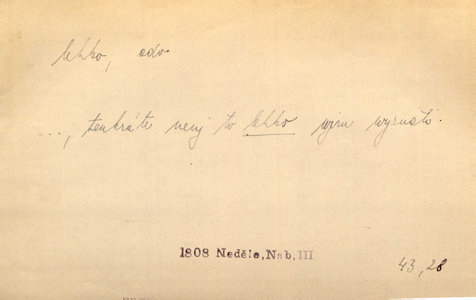 lehko, adv
..., tenkráte nenj to lehko wjru wyznati.
1808 Neděle, Nab, III
43, 28